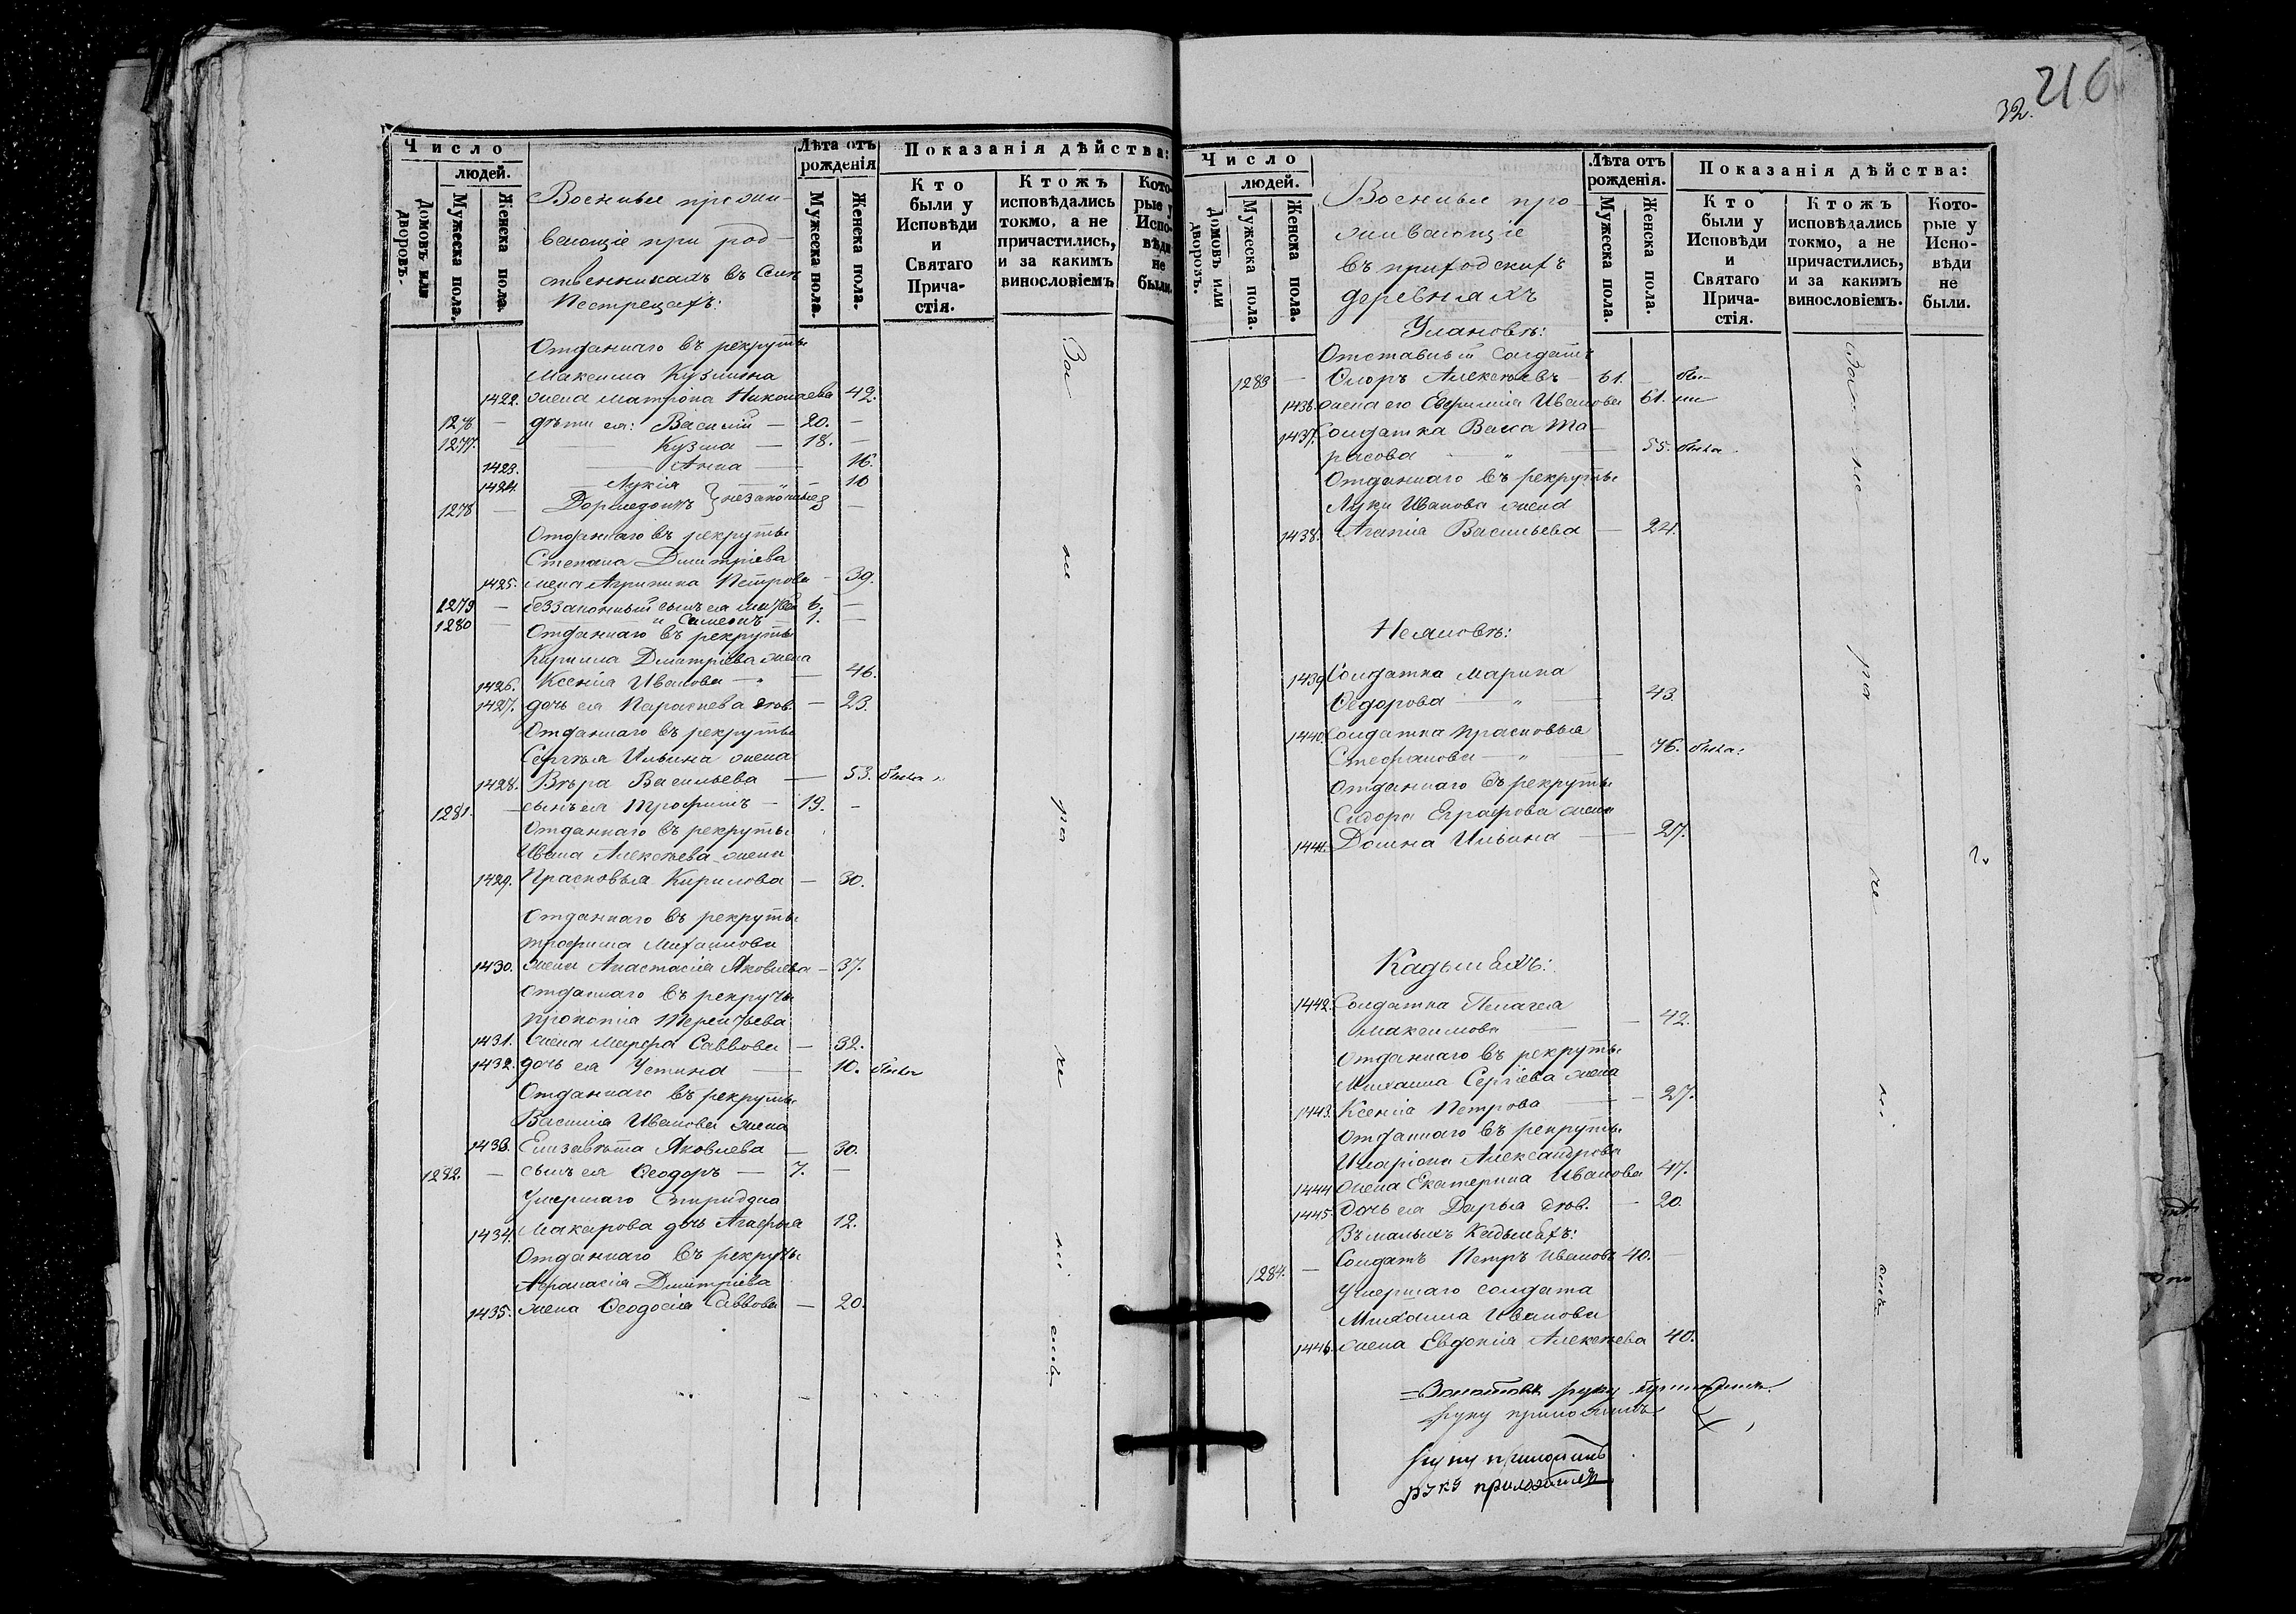 216
32.
Число
людей.
Домовъ или дворовъ.
Мужеска пола.
Женска пола.
Военные прожи-
вающіе при род-
ственникахъ въ Селѣ
Пестрецахъ:
Лѣта отъ рожденія
Мужеска пола.
Женска пола.
Показанія дѣйства:
Кто были у Исповѣди и Святаго Прича-стія.
Ктожъ исповѣдались токмо, а не причастились, и за какимъ винословіемъ
Кото-рые у Испо-вѣди не были.
Отданнаго въ рекруты
Максима Кузмина
1422. жена Матрона Николаева 42.
1276 — дѣти ея: Василій — 20. —
1277. — Кузма — 18. —
1423. — Анна — 16.
1424. — Лукія — 10
1278 — Дормедонтъ } незаконные 3 —
Отданнаго въ рекруты
Степана Димитріева
1425. жена Агрипина Петрова — 39.
1279 — беззаконный сынъ ея 6. —
1280 — и Симеонъ — 1. —
Отданнаго въ рекруты
Кирилла Димитріева жена
1426. Ксенія Иванова — " — 46.
1427. дочь ея Параскева — 23.
Отданнаго въ рекруты
Сергѣя Ильина жена
1428. Вѣра Васильева — 53. была
1281. — сынъ ея Трофимъ — 19. —
Отданнаго въ рекруты
Ивана Алексѣева жена
1429. Прасковья Кирилова — 30.
Отданнаго въ рекруты
Трофима Михаилова
1430. жена Анастасія Яковлева — 37.
Отданнаго въ рекруты
Прокопія Терентьева
1431. жена Марфа Саввова — 32.
1432. дочь ея Устина — 10. была
Отданнаго въ рекруты
Василія Иванова жена
1433. Елизавѣта Яковлева — 30.
1282. — сынъ ея Ѳеодоръ — 7. —
Умершаго Спиридона
1434. Макарова дочь Агафья 12.
Отданнаго въ рекруты
Афанасія Димитріева
1435. жена Ѳеодосія Саввова — 20.
Число
людей.
Домовъ или дворовъ.
Мужеска пола.
Женска пола.
Военные про-
живающіе
въ приходскихъ
деревняхъ
Лѣта отъ рожденія.
Мужеска пола.
Женска пола.
Показанія дѣйства:
Кто были у Исповѣди и Святаго Прича-стія.
Ктожъ исповѣдались токмо, а не причастились, и за какимъ винословіемъ.
Кото-рые у Испо-вѣди не были.
Улановѣ:
Отставный Солдатъ
1283 — Флоръ Алексѣевъ — 61. — бы-
1436. жена его Евфимія Иванова 61. ли
1437. Солдатка Васса Та-
расова — " — 55. была
Отданнаго въ рекруты
Луки Иванова жена
1438. Агапія Васильева — 24.
Неяловѣ:
1439 Солдатка Марина
Ѳедорова — " — 43.
1440. Солдатка Прасковья
Стефанова — " — 76. была:
Отданнаго въ рекруты
Сидора Евграфова жена
1441. Домна Ильина — 27.
Кадышахъ:
1442. Солдатка Пелагея
Максимова — 42.
Отданнаго въ рекруты
Михаила Сергіева жена
1443. Ксенія Петрова — 27.
Отданнаго въ рекруты
Иларіона Александрова
1444 жена Екатерина Иванова 47.
1445. Дочь ея Дарья — 20.
Въ малыхъ Кадышахъ:
1284. — Солдатъ Петръ Ивановъ 40. —
Умершаго солдата
Михаила Иванова
1446. жена Евдокія Алексѣева 40.
руку приложилъ
руку приложилъ
руку приложилъ